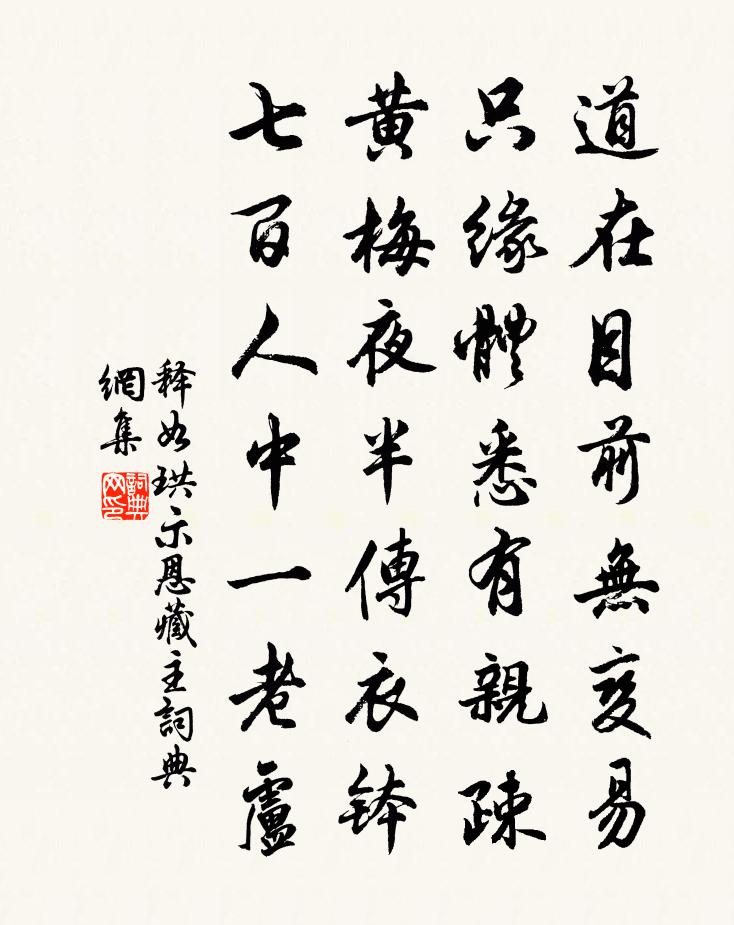 道在目前無變易
只緣體悉有親疎
黃梅夜半傳衣鉢
七百人中一老盧
释如珙示恩藏主詞典
網集
詞典
网印